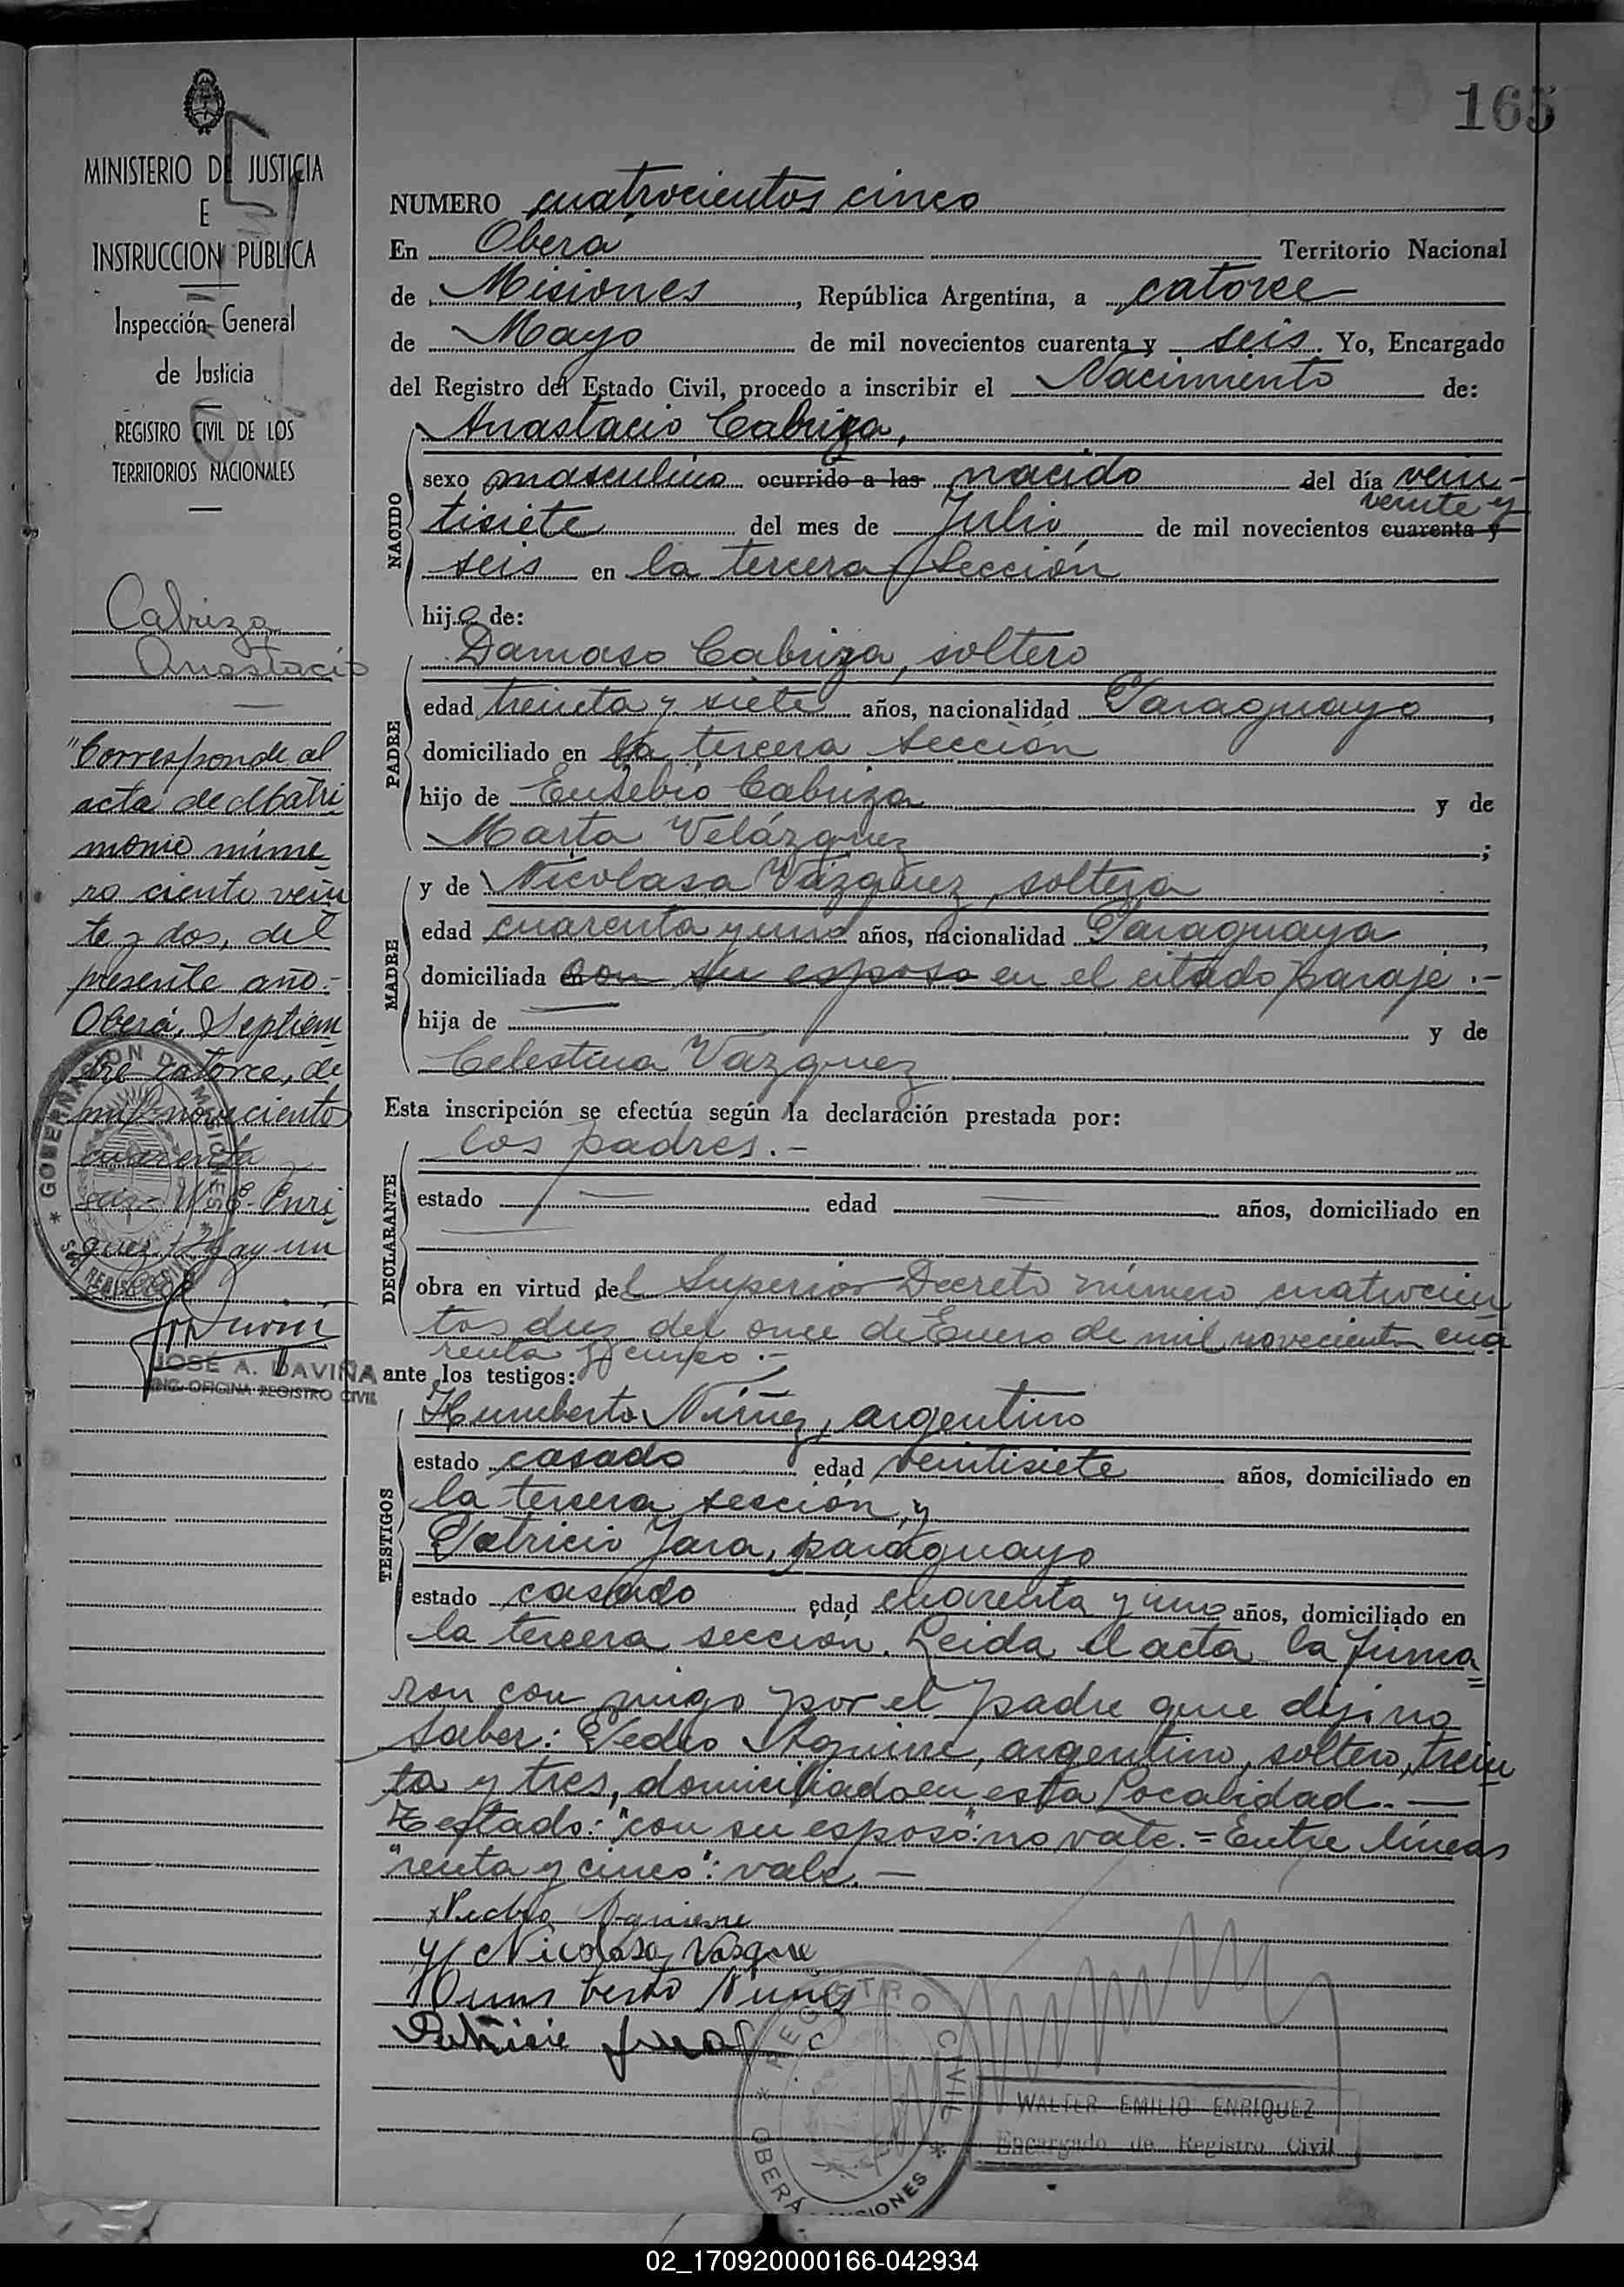 165
MINISTERIO DE JUSTICIA
E
INSTRUCCION PUBLICA
Inspección General
de Justicia
REGISTRO CIVIL DE LOS
TERRITORIOS NACIONALES
Cabriza
Anastacio
"Corresponde al
acta de Matri
monio núme
ro ciento vein
te y dos, del
presente año.-
Oberá, Septiem
bre catorce, de
mil novecientos
cuarenta
seis- W. E. Enri
quez. Hay un
GOBERNACION DE MISIONES
REGISTRO CIVIL
JOSÉ A. DAVIÑA
ENC. OFICINA REGISTRO CIVIL
NUMERO cuatrocientos cinco
En Oberá Territorio Nacional
de Misiones, República Argentina, a catorce
de Mayo de mil novecientos cuarenta y seis. Yo, Encargado
del Registro del Estado Civil, procedo a inscribir el Nacimiento de:
NACIDO
Anastacio Cabriza,
sexo masculino ocurrido a las nacido del día vein-
veinte y
tisiete del mes de Julio de mil novecientos cuarenta y
seis en la tercera Sección
hijo de:
PADRE
Damaso Cabriza, soltero
edad treinta y siete años, nacionalidad Paraguayo,
domiciliado en la tercera sección
hijo de Eusebio Cabriza y de
Marta Velázquez;
MADRE
y de Nicolasa Vázquez, soltera
edad cuarenta y uno años, nacionalidad Paraguaya,
domiciliada con su esposo en el citado paraje.-
hija de y de
Celestina Vazquez
Esta inscripción se efectúa según la declaración prestada por:
DECLARANTE
los padres.-
estado edad años, domiciliado en
obra en virtud del Superior Decreto número cuatrocien
tos diez del once de Enero de mil novecientos cua
renta y cinco.-
ante los testigos:
TESTIGOS
Humberto Núñez, argentino
estado casado edad veintisiete años, domiciliado en
la tercera sección, y
Patricio Jara, paraguayo
estado casado edad cuarenta y uno años, domiciliado en
la tercera sección. Leida el acta la firma
ron con migo por el padre que dijo no
saber: Pedro Aguirre, argentino, soltero, trein
ta y tres, domiciliado en esta Localidad.-
Testado: "con su esposo": no vale.= Entre líneas
"renta y cinco": vale.-
Pedro Aguirre
Nicolasa Vasque
Humberto Nuñes
Patricio Jara
REGISTRO CIVIL
OBERÁ MISIONES
WALTER EMILIO ENRIQUEZ
Encargado de Registro Civil
02_170920000166-042934